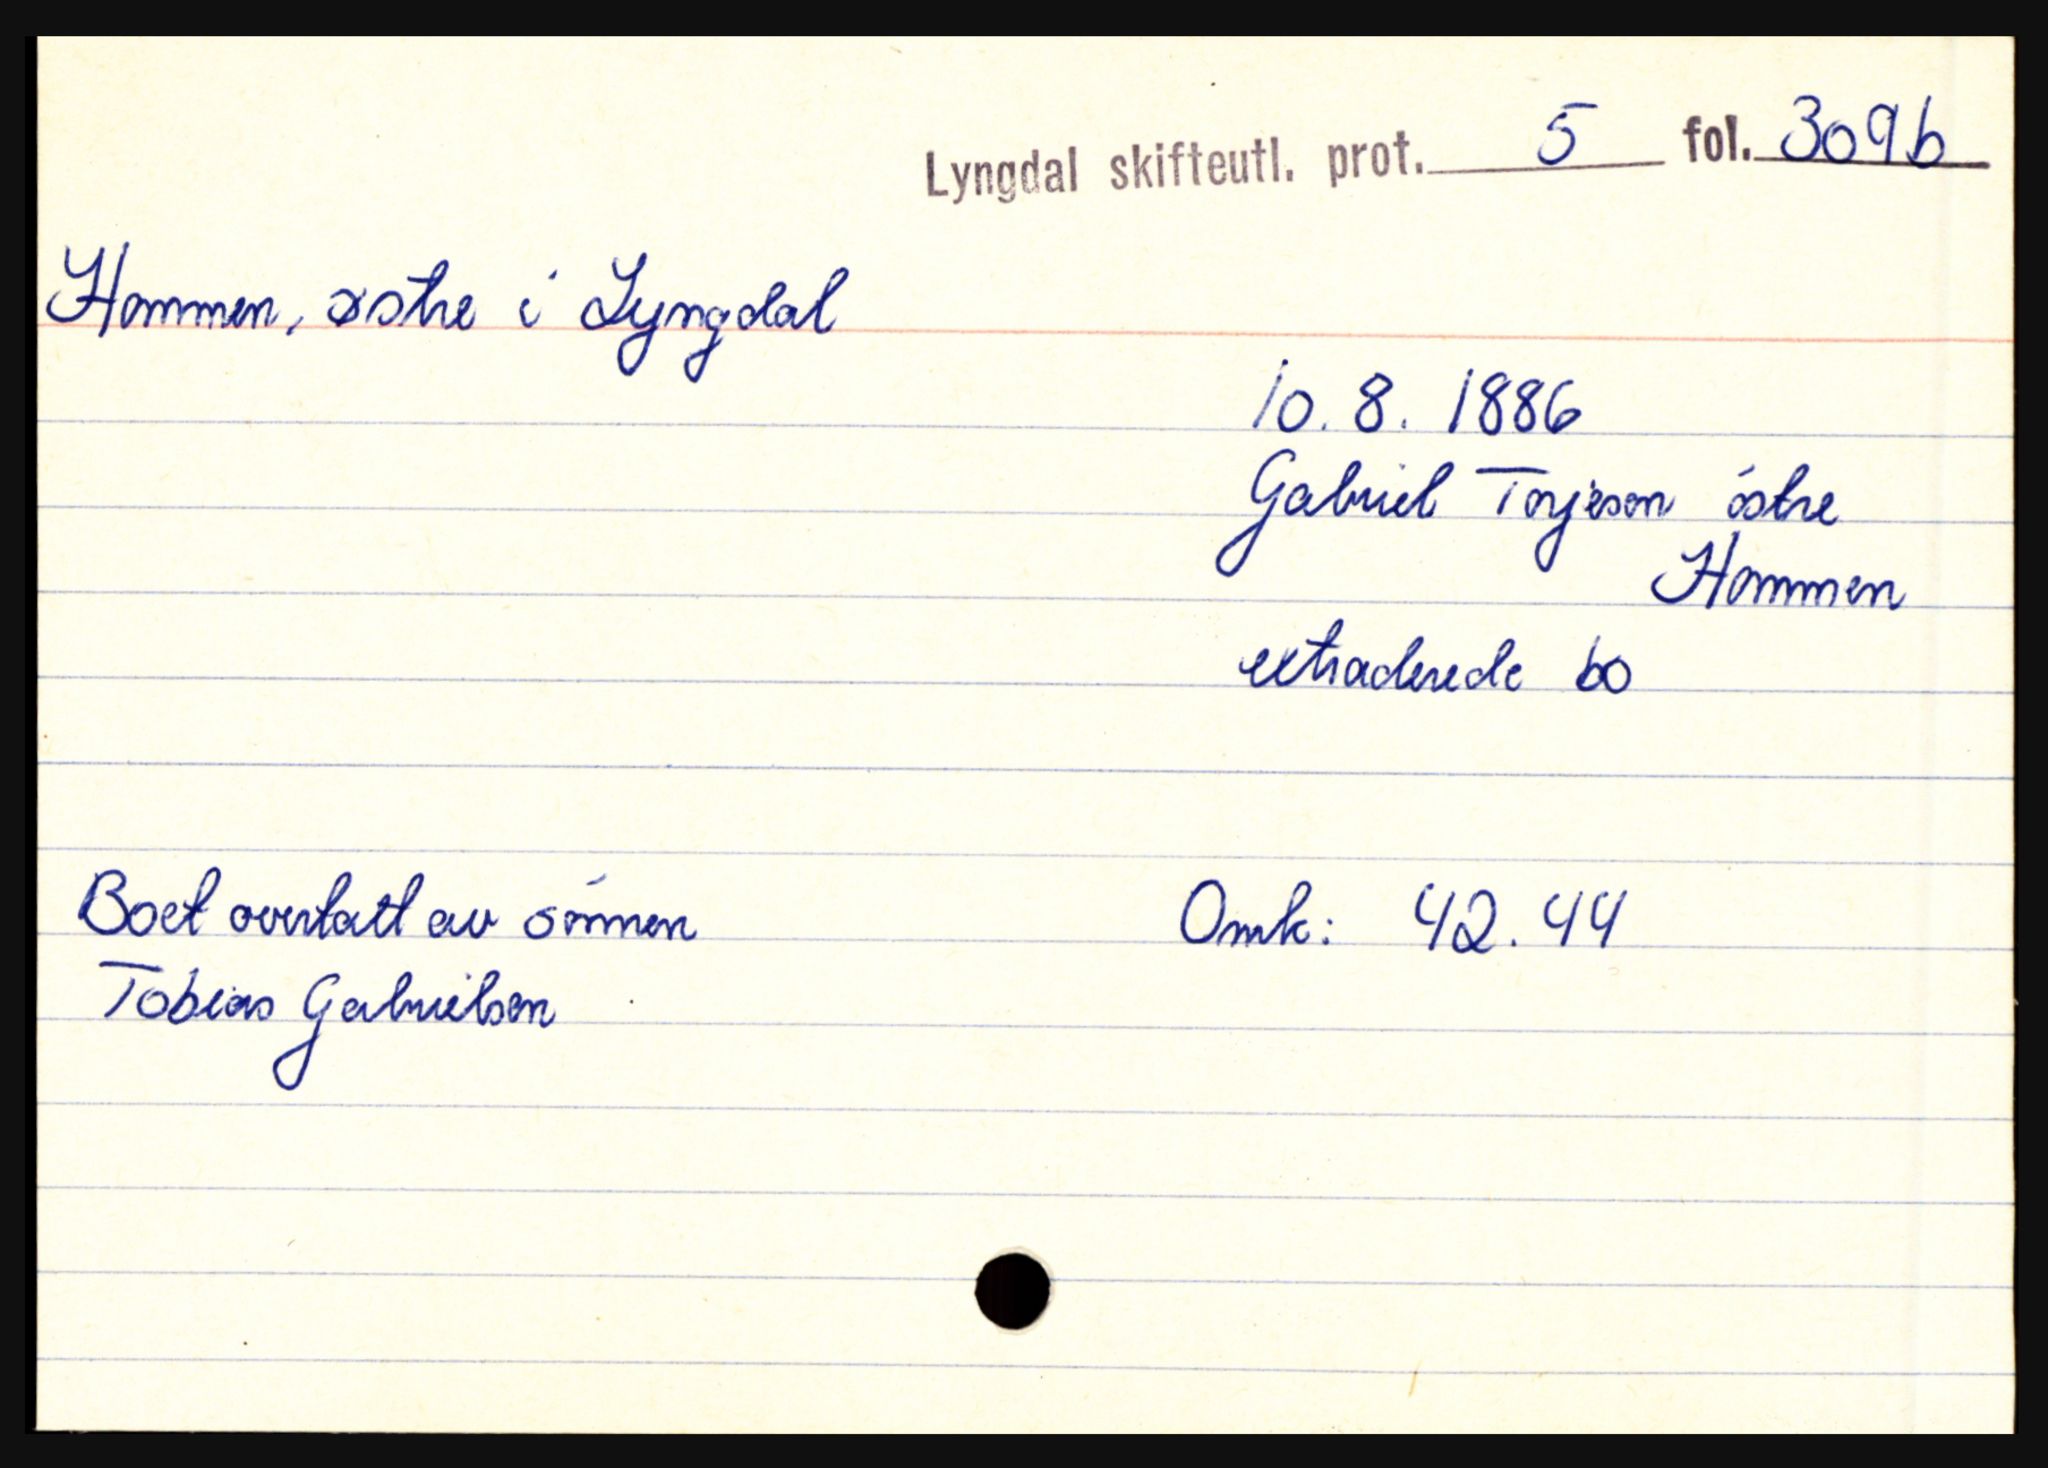 Lyngdal skifteutl. prot. 5 fol. 309b
Hommen, østre i Lyngdal
10. 8. 1886
Gabriel Torjesen östre
Hommen
extraderede bo
Boet overtatt av sönnen
Omk: 42.44
Tobias Gabrielsen